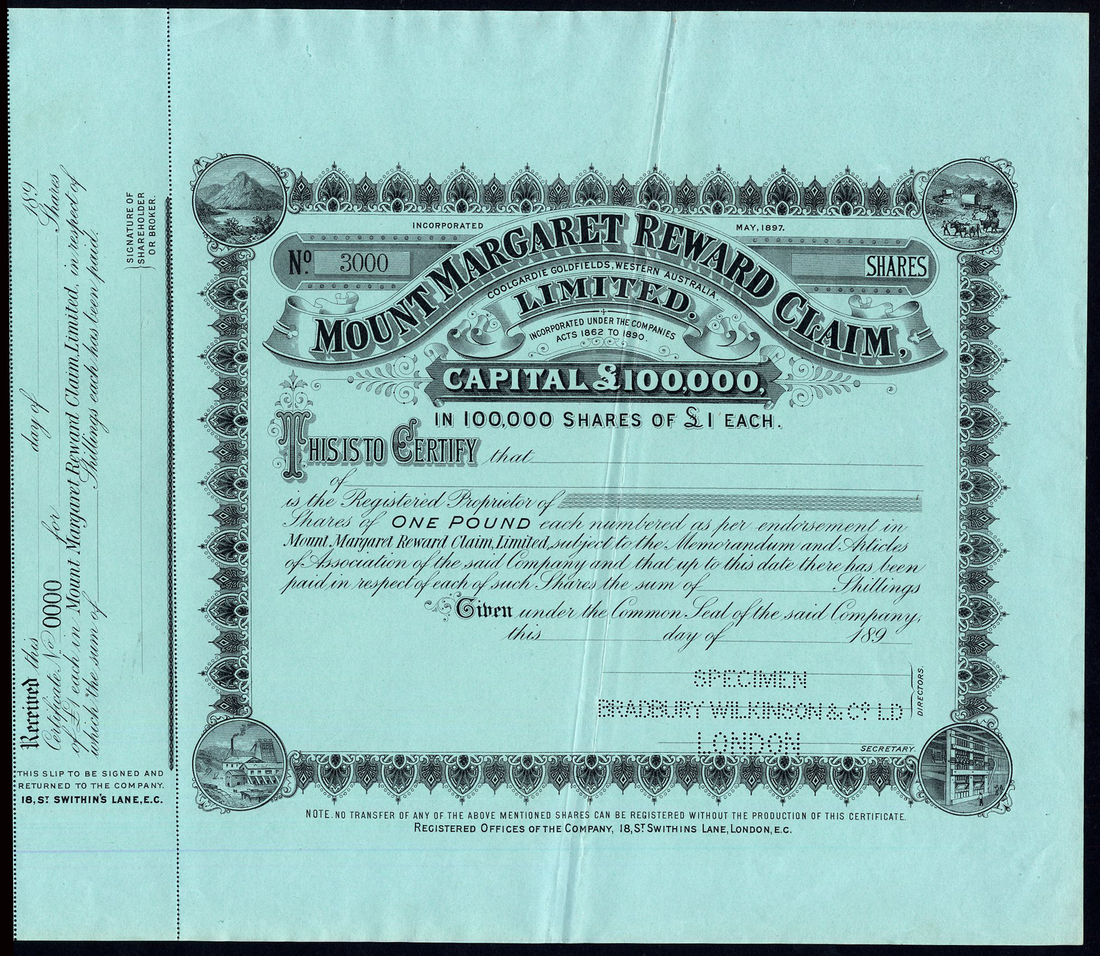 Received this day of 189
Certificate No 0000 for Shares
of £1 each in Mount Margaret Reward Claim, Limited, in respect of
which the sum of Shillings each has been paid.
SIGNATURE OF
SHAREHOLDER
OR BROKER.
THIS SLIP TO BE SIGNED AND
RETURNED TO THE COMPANY.
18, ST SWITHIN'S LANE, E.C.
INCORPORATED MAY, 1897.
No. 3000 SHARES
MOUNT MARGARET REWARD CLAIM,
COOLGARDIE GOLDFIELDS, WESTERN AUSTRALIA.
LIMITED.
INCORPORATED UNDER THE COMPANIES
ACTS 1862 TO 1890.
CAPITAL £100,000,
IN 100,000 SHARES OF £1 EACH.
THIS IS TO CERTIFY that
of
is the Registered Proprietor of
Shares of ONE POUND each numbered as per endorsement in
Mount Margaret Reward Claim, Limited, subject to the Memorandum and Articles
of Association of the said Company and that up to this date there has been
paid in respect of each of such Shares the sum of Shillings
Given under the Common Seal of the said Company,
this day of 189
SPECIMEN
BRADBURY WILKINSON & Co LD
LONDON
DIRECTORS.
SECRETARY.
NOTE. NO TRANSFER OF ANY OF THE ABOVE MENTIONED SHARES CAN BE REGISTERED WITHOUT THE PRODUCTION OF THIS CERTIFICATE.
REGISTERED OFFICES OF THE COMPANY, 18, ST SWITHINS LANE, LONDON, E.C.